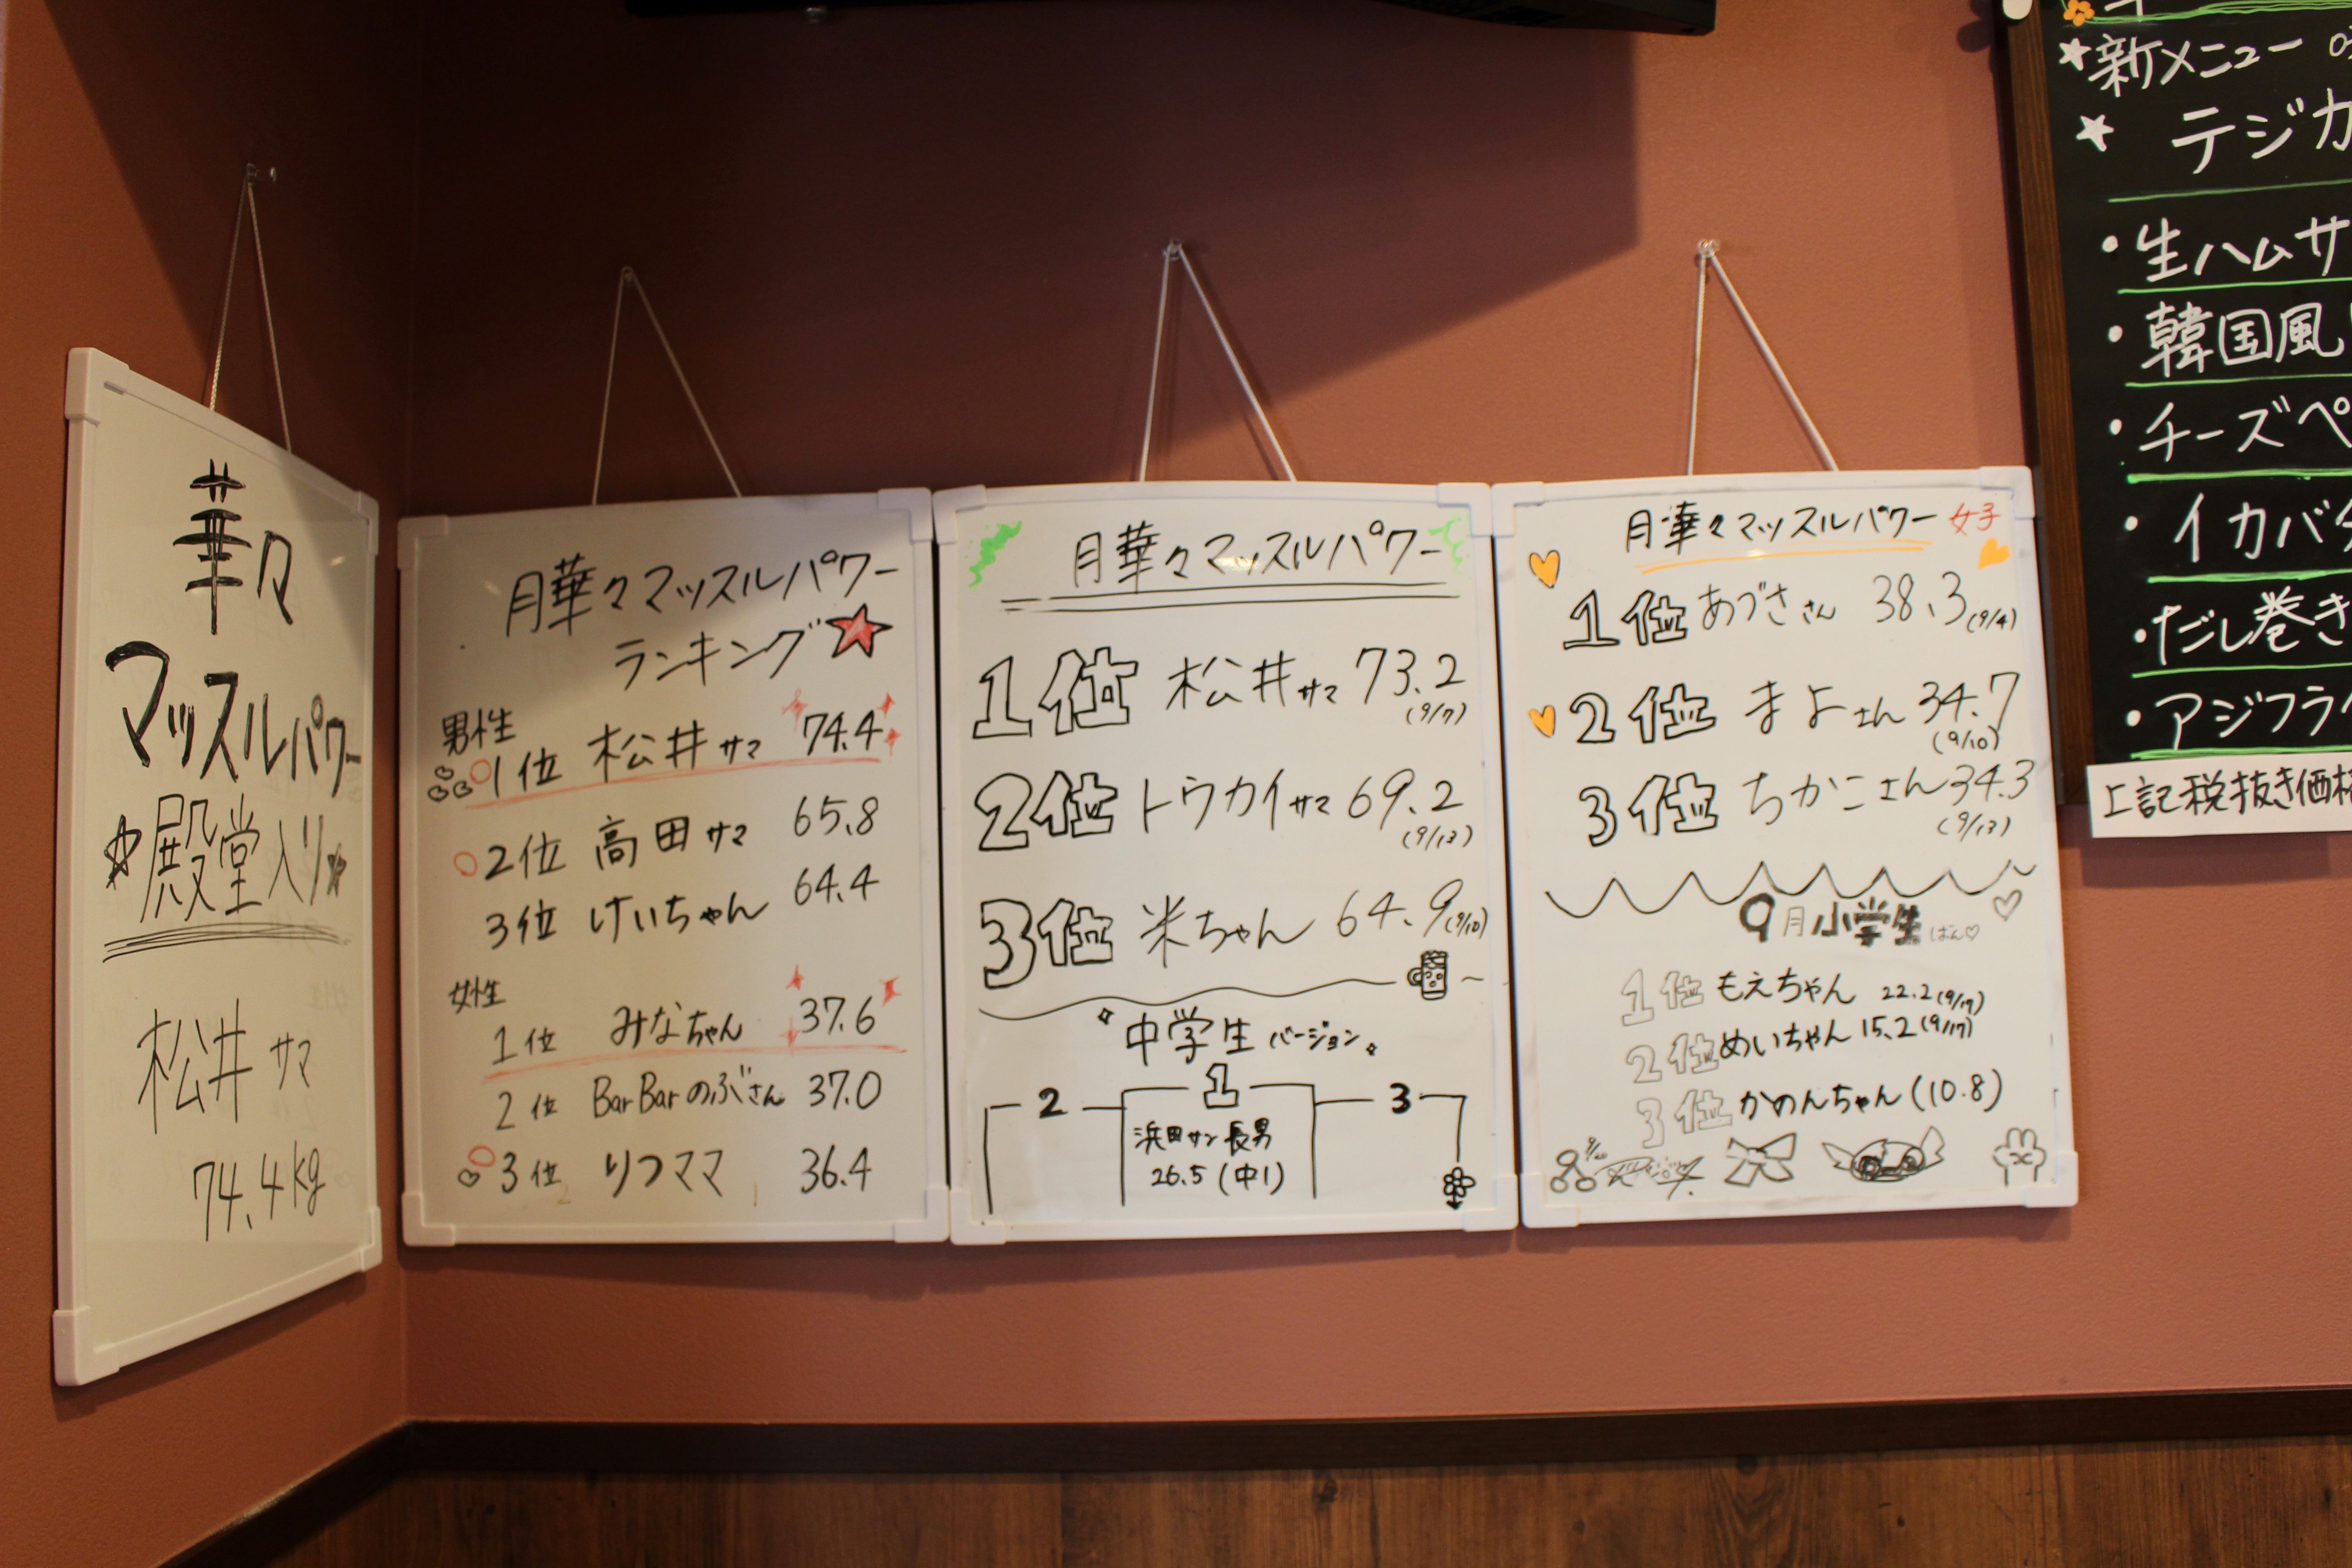 華々
マッスルパワー
殿堂入り
松井サマ
74.4kg
月華々マッスルパワー
ランキング
男性
1位 松井サマ 74.4
2位 高田サマ 65.8
3位 けいちゃん 64.4
女性
1位 みなちゃん 37.6
2位 BarBarのぶさん 37.0
3位 りつママ 36.4
月華々マッスルパワー
1位 松井サマ 73.2
(9/7)
2位 トウカイサマ 69.2
(9/13)
3位 米ちゃん 64.9(9/10)
中学生バージョン
2 1 3
浜田サン長男
26.5(中1)
月華々マッスルパワー 女子
1位 あづささん 38.3(9/4)
2位 まよさん 34.7
(9/10)
3位 ちかこさん 34.3
(9/13)
9月小学生ばん♡
1位 もえちゃん 22.2(9/17)
2位 めいちゃん 15.2(9/17)
3位 かのんちゃん(10.8)
新メニュー
テジカ
・生ハムサ
・韓国風
・チーズペ
・イカバタ
・だし巻き
・アジフラ
上記税抜き価格